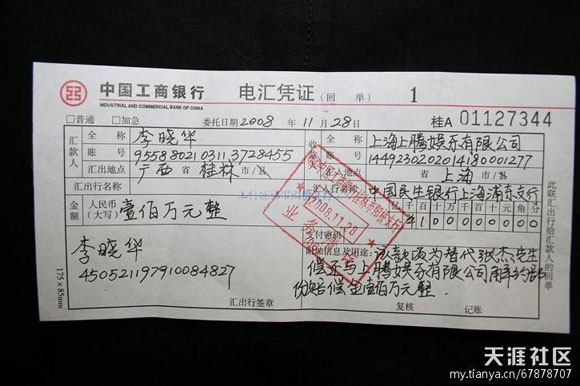 中国工商银行 电汇凭证（回 单） 1
INDUSTRIAL AND COMMERCIAL BANK OF CHINA
□普通 □加急 委托日期 2008 年 11 月 28 日 桂A 01127344
汇款人 全称 李晓华
账号 9558802103113728455
汇出地点 广西 省 桂林 市/县
汇出行名称
收款人 全称 上海上腾娱乐有限公司
账号 1449230202014180001277
汇入地点 省 上海 市/县
汇入行名称 中国民生银行上海浦东支行
金额 人民币（大写） 壹佰万元整
千百十万千百十元角分
¥100000000
支付密码
2008.11.28
业务
李晓华
450521197910084827
附加信息及用途：该款项为替代张杰先生
偿还与上腾娱乐有限公司解约部
份赔偿金壹佰万元整．
汇出行签章 复核 记账
此联汇出行给汇款人的回单
175×85mm
天涯社区
my.tianya.cn/67878707